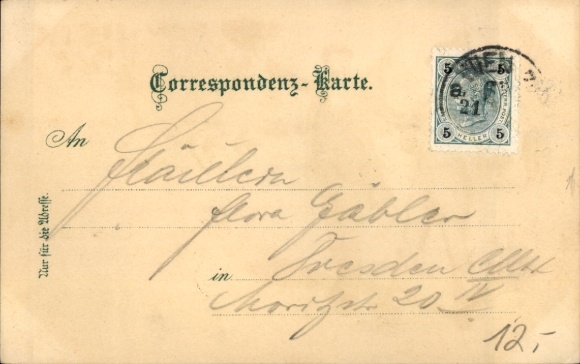 Correspondenz-Karte.
5 5
WIEN
21
HELLER
5 5
An
Fräulein
Flora Gäbler
in Dresden Altst
Moritzstr 20 IV
Nur für die Adresse.
12,-